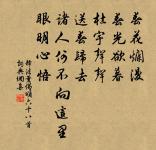 春花爛漫
春光欲暮
杜宇聲聲
送春歸去
諸人何不向這里
眼明心悟
釋法薰偈頌六十八首
詞典網集